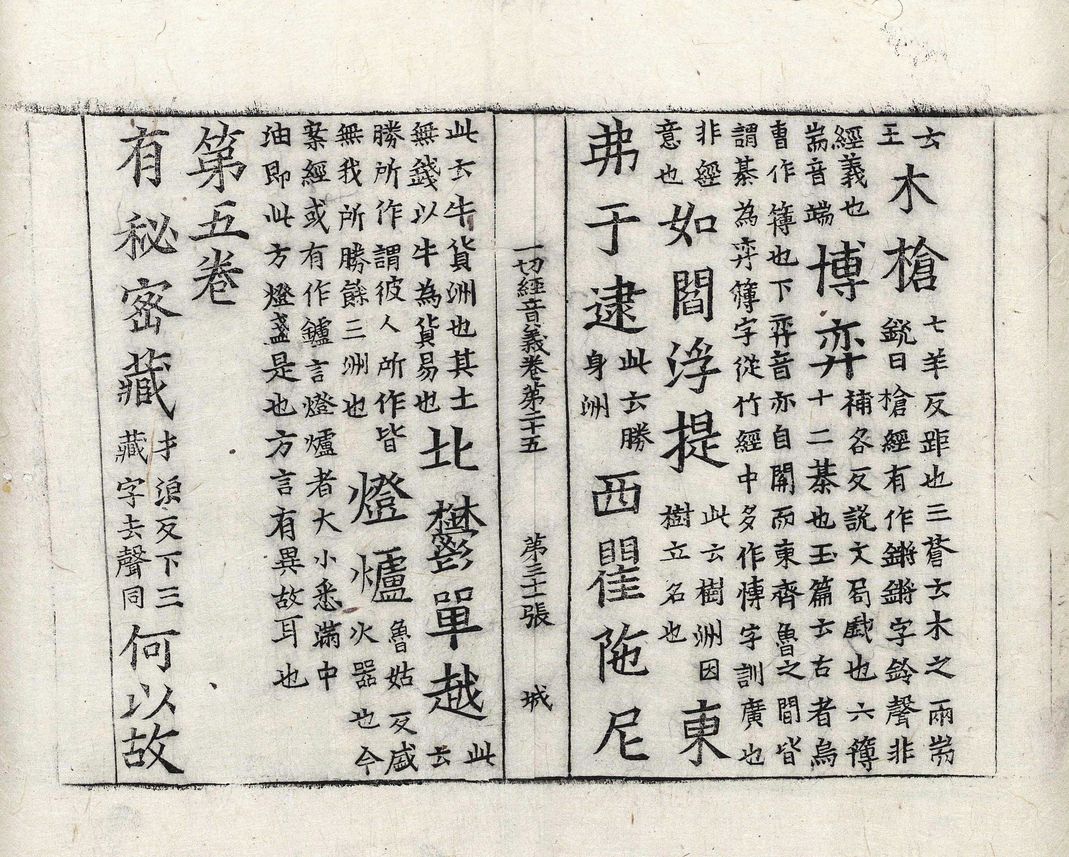 云
王
木槍
七羊反距也三蒼云木之兩耑
銳曰槍經有作鏘鏘字鈴聲非
經義也
耑音端
博弈
補各反說文局戲也六簿
十二棊也玉篇云古者烏
曹作簿也下弈音亦自關而東齊魯之間皆
謂棊為弈簿字從竹經中多作愽字訓廣也
非經
意也
如閻浮提
此云樹洲因
樹立名也
東
弗于逮
此云勝
身洲
西瞿陁尼
一切經音義卷第二十五 第三十一張 城
此云牛貨洲也其土
無錢以牛為貨易也
北欝單越
此
云
勝所作謂彼人所作皆
無我所勝餘三洲也
燈爐
魯姑反盛
火器也今
案經或有作鑪言燈爐者大小悉滿中
油即此方燈盞是也方言有異故耳也
第五卷
有秘密藏
才浪反下三
藏字去聲同
何以故